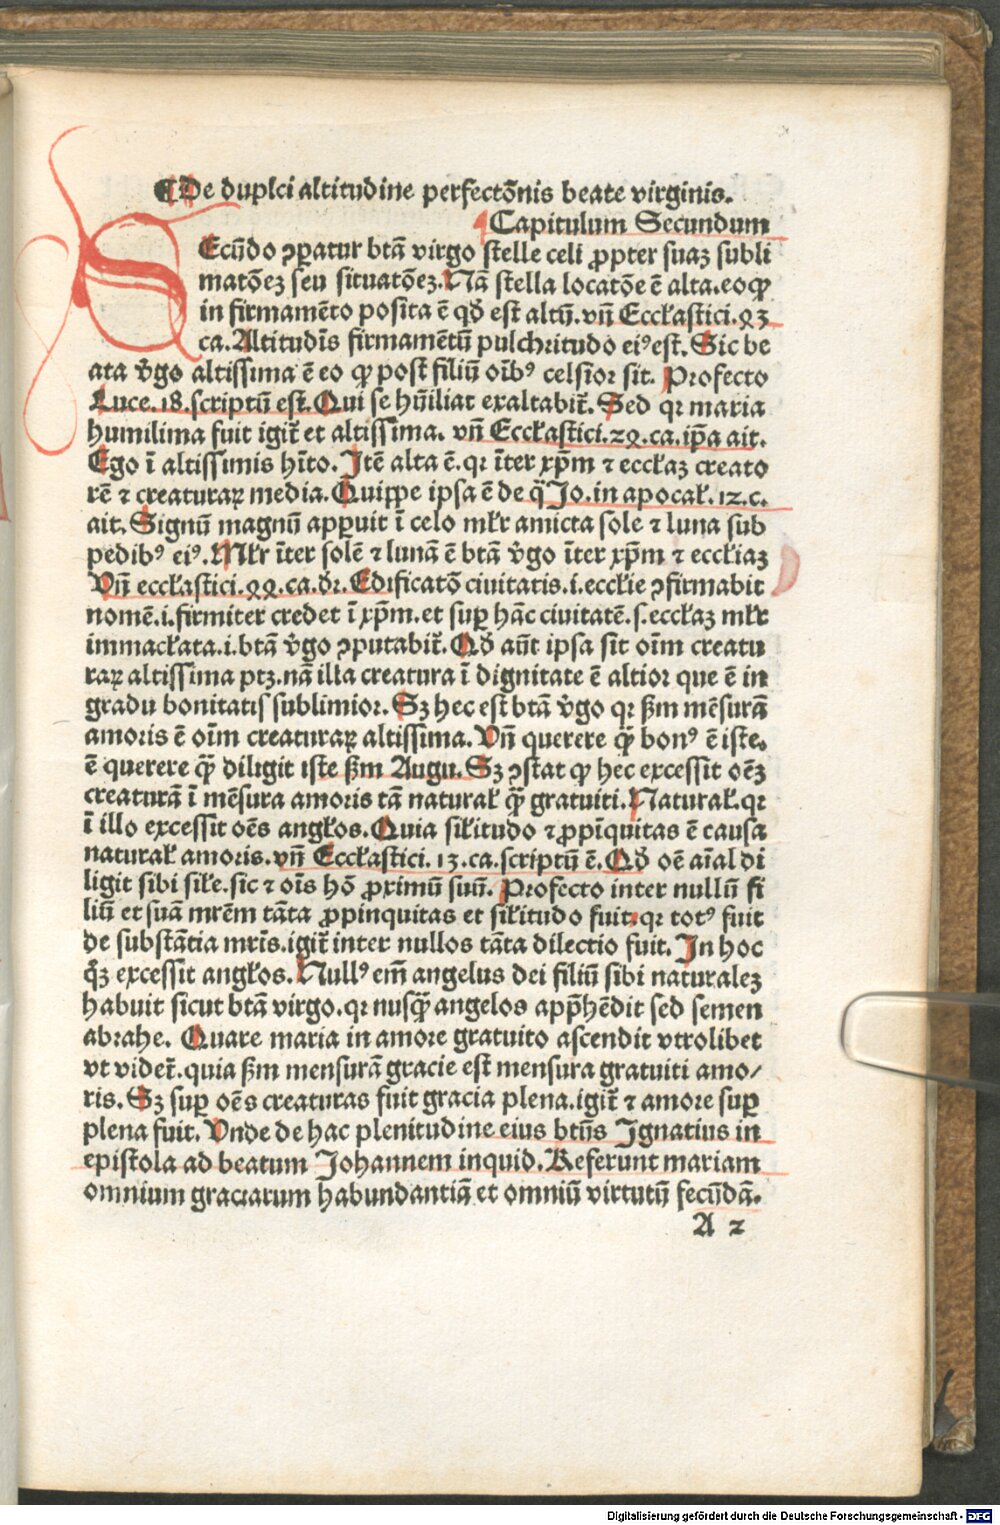 ¶De duplci altitudine perfectōnis beate virginis.
Capitulum Secundum
SEcūdo ꝯꝑatur btā virgo stelle celi ꝓpter suaꝫ subli
matōeꝫ seu situatōeꝫ. Nā stella locatōe ē alta. eo qꝫ
in firmamēto posita ē qđ est altū. vñ Eccƚastici. 43
ca. Altitudīs firmamētū pulchritudo eiꝰ est. Sic be
ata v̉go altissima ē eo qꝫ post filiū oībꝰ celsior sit. Profecto
Luce. 18. scriptū est. Qui se hūiliat exaltabit̄. Sed qꝛ maria
humilima fuit igit̄ et altissima. vñ Eccƚastici. 24. ca. ip̄a ait.
Ego ī altissimis hīto. Itē alta ē. qꝛ īter xp̄m ⁊ eccƚaꝫ creato
rē ⁊ creaturaꝝ media. Quippe ipsa ē de q̄ Jo. in apocaƚ. 12. c.
ait. Signū magnū apparuit ī celo mƚr amicta sole ⁊ luna sub
pedibꝰ eiꝰ. Mƚr īter solē ⁊ lunā ē btā v̉go īter xp̄m ⁊ eccƚiaꝫ
Vñ eccƚastici. 44. ca. dꝛ. Edificatō ciuitatis. i. eccƚie ꝯfirmabit
nomē. i. firmiter credet ī xp̄m. et suꝑ hāc ciuitatē. s. eccƚaꝫ mƚr
immacƚata. i. btā v̉go ꝯputabit̄. Qđ aūt ipsa sit oīm creatu
raꝝ altissima ptꝫ. nā illa creatura ī dignitate ē altior que ē in
gradu bonitatis sublimior. Sꝫ hec est btā v̉go qꝛ ẜm mēsurā
amoris ē oīm creaturaꝝ altissima. Vñ querere q̄ bonꝰ ē iste.
ē querere q̄ diligit iste ẜm Augu. Sꝫ ꝯstat qꝫ hec excessit oēꝫ
creaturā ī mēsura amoris tā naturaƚ q̄ gratuiti. Naturaƚ. qꝛ
ī illo excessit oēs angƚos. Quia siƚitudo ⁊ ꝓpīquitas ē causa
naturaƚ amoris. vñ Eccƚastici. 13. ca. scriptū ē. Qđ oē aīal di
ligit sibi siƚe. sic ⁊ oīs hō ꝓximū suū. Profecto inter nullū fi
liū et suā mrēm tāta ꝓpinquitas et siƚitudo fuit. qꝛ totꝰ fuit
de substātia mrīs. igit̄ inter nullos tāta dilectio fuit. In hoc
q̄ꝫ excessit angƚos. Nullꝰ em̄ angelus dei filiū sibi naturaleꝫ
habuit sicut btā virgo. qꝛ nusq̄ angelos app̄hēdit sed semen
abrahe. Quare maria in amore gratuito ascendit vtrolibet
vt videt̄. quia ẜm mensurā gracie est mensura gratuiti amo/
ris. Sꝫ suꝑ oēs creaturas fuit gracia plena. igit̄ ⁊ amore suꝑ
plena fuit. Vnde de hac plenitudine eius btūs Ignatius in
epistola ad beatum Johannem inquid. Referunt mariam
omnium graciarum habundantiā et omniū virtutū fecūdā.
A 2
Digitalisierung gefördert durch die Deutsche Forschungsgemeinschaft - DFG